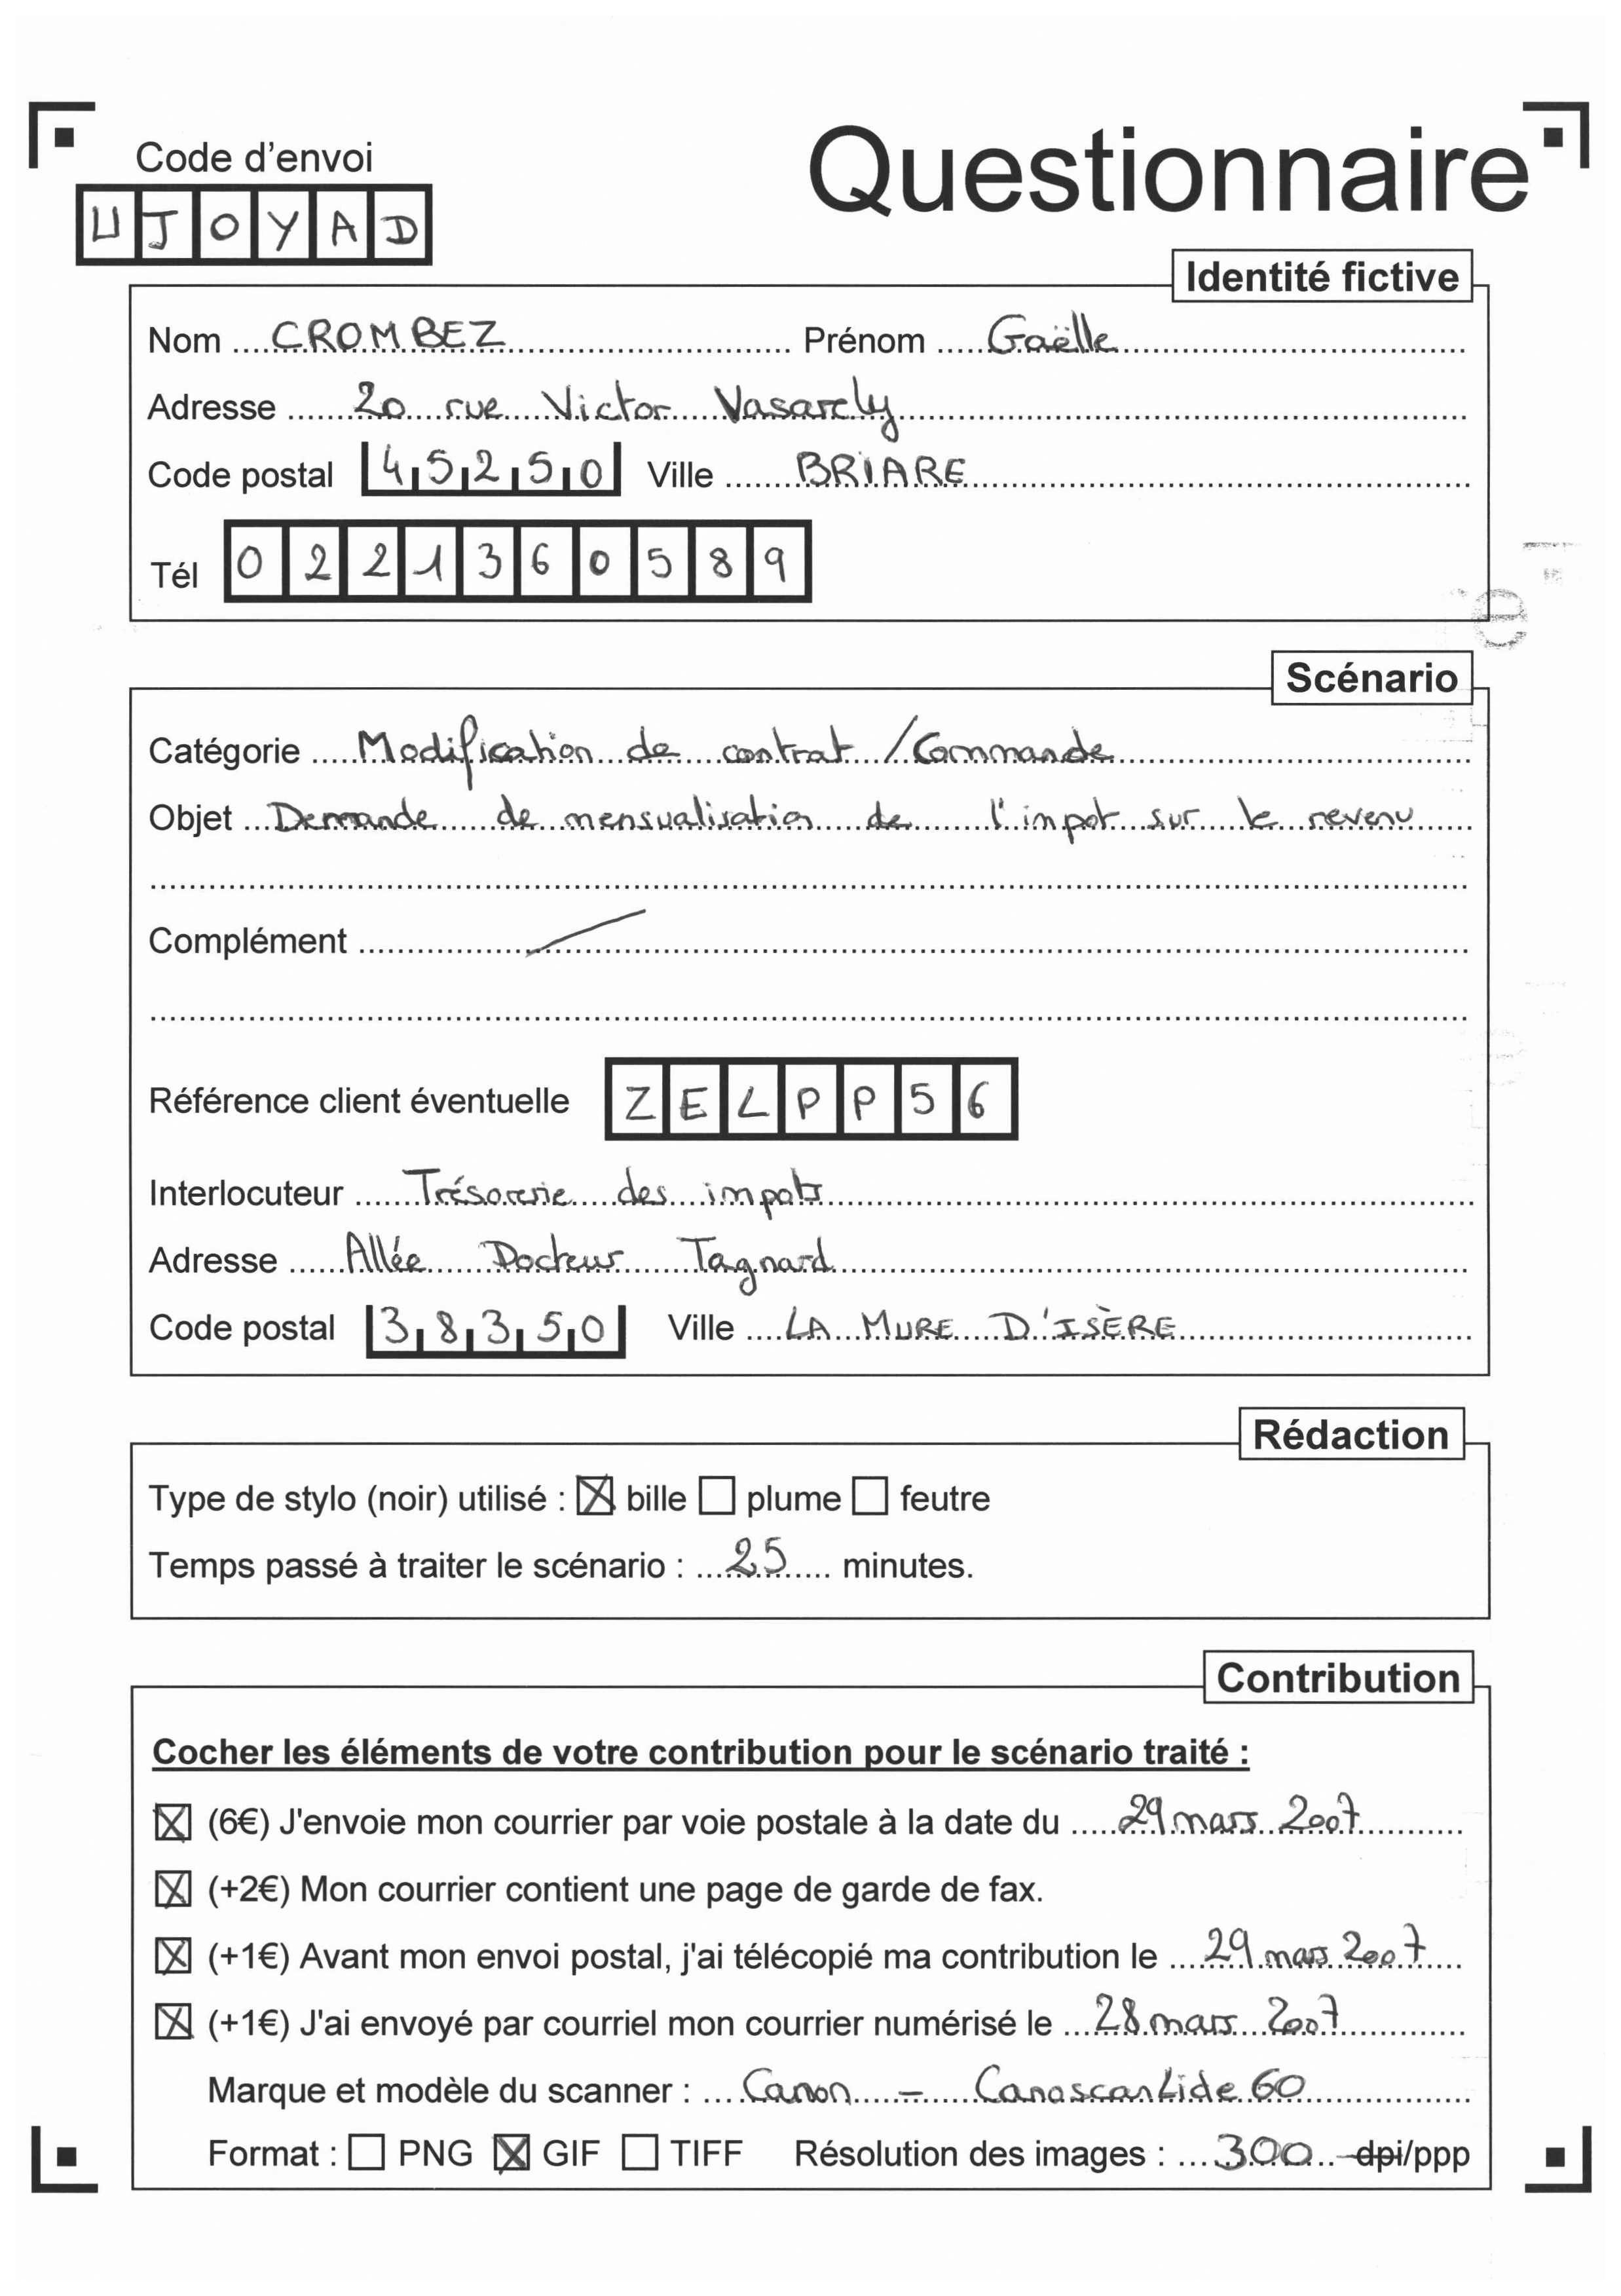 Questionnaire
Code d'envoi
UJOYAD
Identité fictive
Nom CROMBEZ Prénom Gaëlle
Adresse 20 rue Victor Vasarely
Code postal 45250 Ville BRIARE
Tél 0221360589
Scénario
Catégorie Modification de contrat / Commande
Objet Demande de mensualisation de l'impot sur le revenu
Complément
Référence client éventuelle ZELPP56
Interlocuteur Trésorerie des impots
Adresse Allée Docteur Tagnard
Code postal 38350 Ville LA MURE D'ISÈRE
Rédaction
Type de stylo (noir) utilisé : bille plume feutre
Temps passé à traiter le scénario : 25 minutes.
Contribution
Cocher les éléments de votre contribution pour le scénario traité :
(6€) J'envoie mon courrier par voie postale à la date du 29 mars 2007
(+2€) Mon courrier contient une page de garde de fax.
(+1€) Avant mon envoi postal, j'ai télécopié ma contribution le 29 mars 2007
(+1€) J'ai envoyé par courriel mon courrier numérisé le 28 mars 2007
Marque et modèle du scanner : Canon - Canoscan Lide 60
Format : PNG GIF TIFF Résolution des images : 300 dpi/ppp